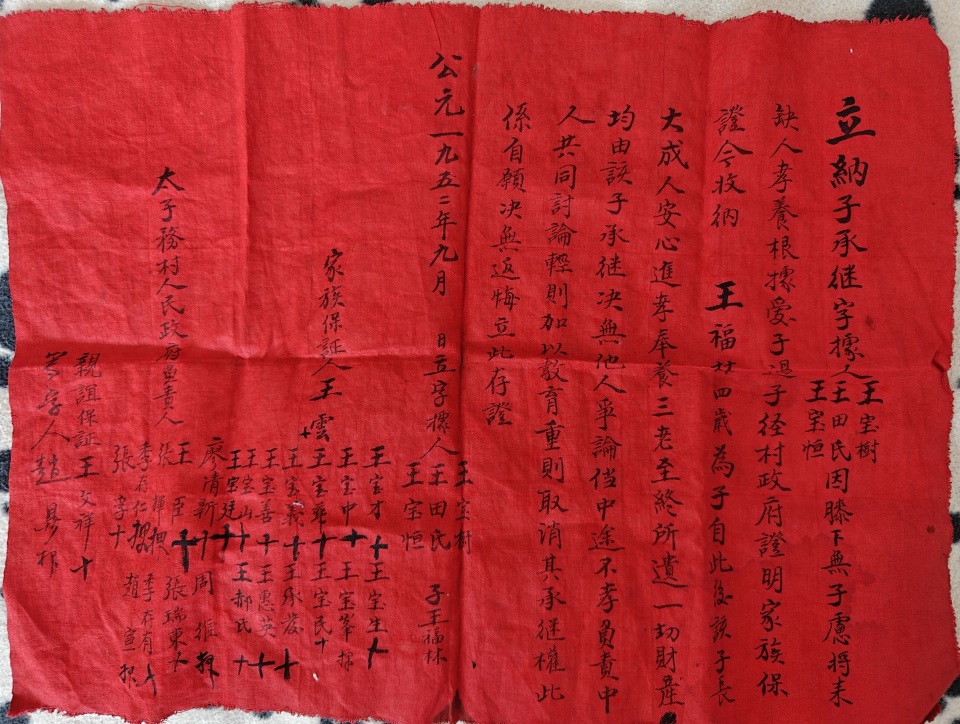 立納子承继字據人王宝樹
王田氏因膝下無子慮將来
王宝恒
缺人孝養根據愛子過子径村政府證明家族保
證令收納 王福廿四歲為子自此後該子長
大成人安心進孝奉養三老至終所遺一切財產
均由該子承继决無他人爭論倘中途不孝負責中
人共同討論輕則加以教育重則取消其承继權此
係自願决無返悔立此存證
公元一九五二年九月 日立字據人王宝樹
王田氏 子王福林
王宝恒
家族保証人王雲十
王宝才十 王宝生十
王宝中十 王宝峯押
王宝華十 王宝民十
王宝義十 王承发十
王宝善十 王惠英十
王宝山十 王郝氏十
王宝廷十
太子務村人民政府負責人
廖清新 周 押
王臣十 張瑞東十
張 押
李存仁押 李存有十
張 十 趙宣押
親誼保証王文祥十
写字人趙 押